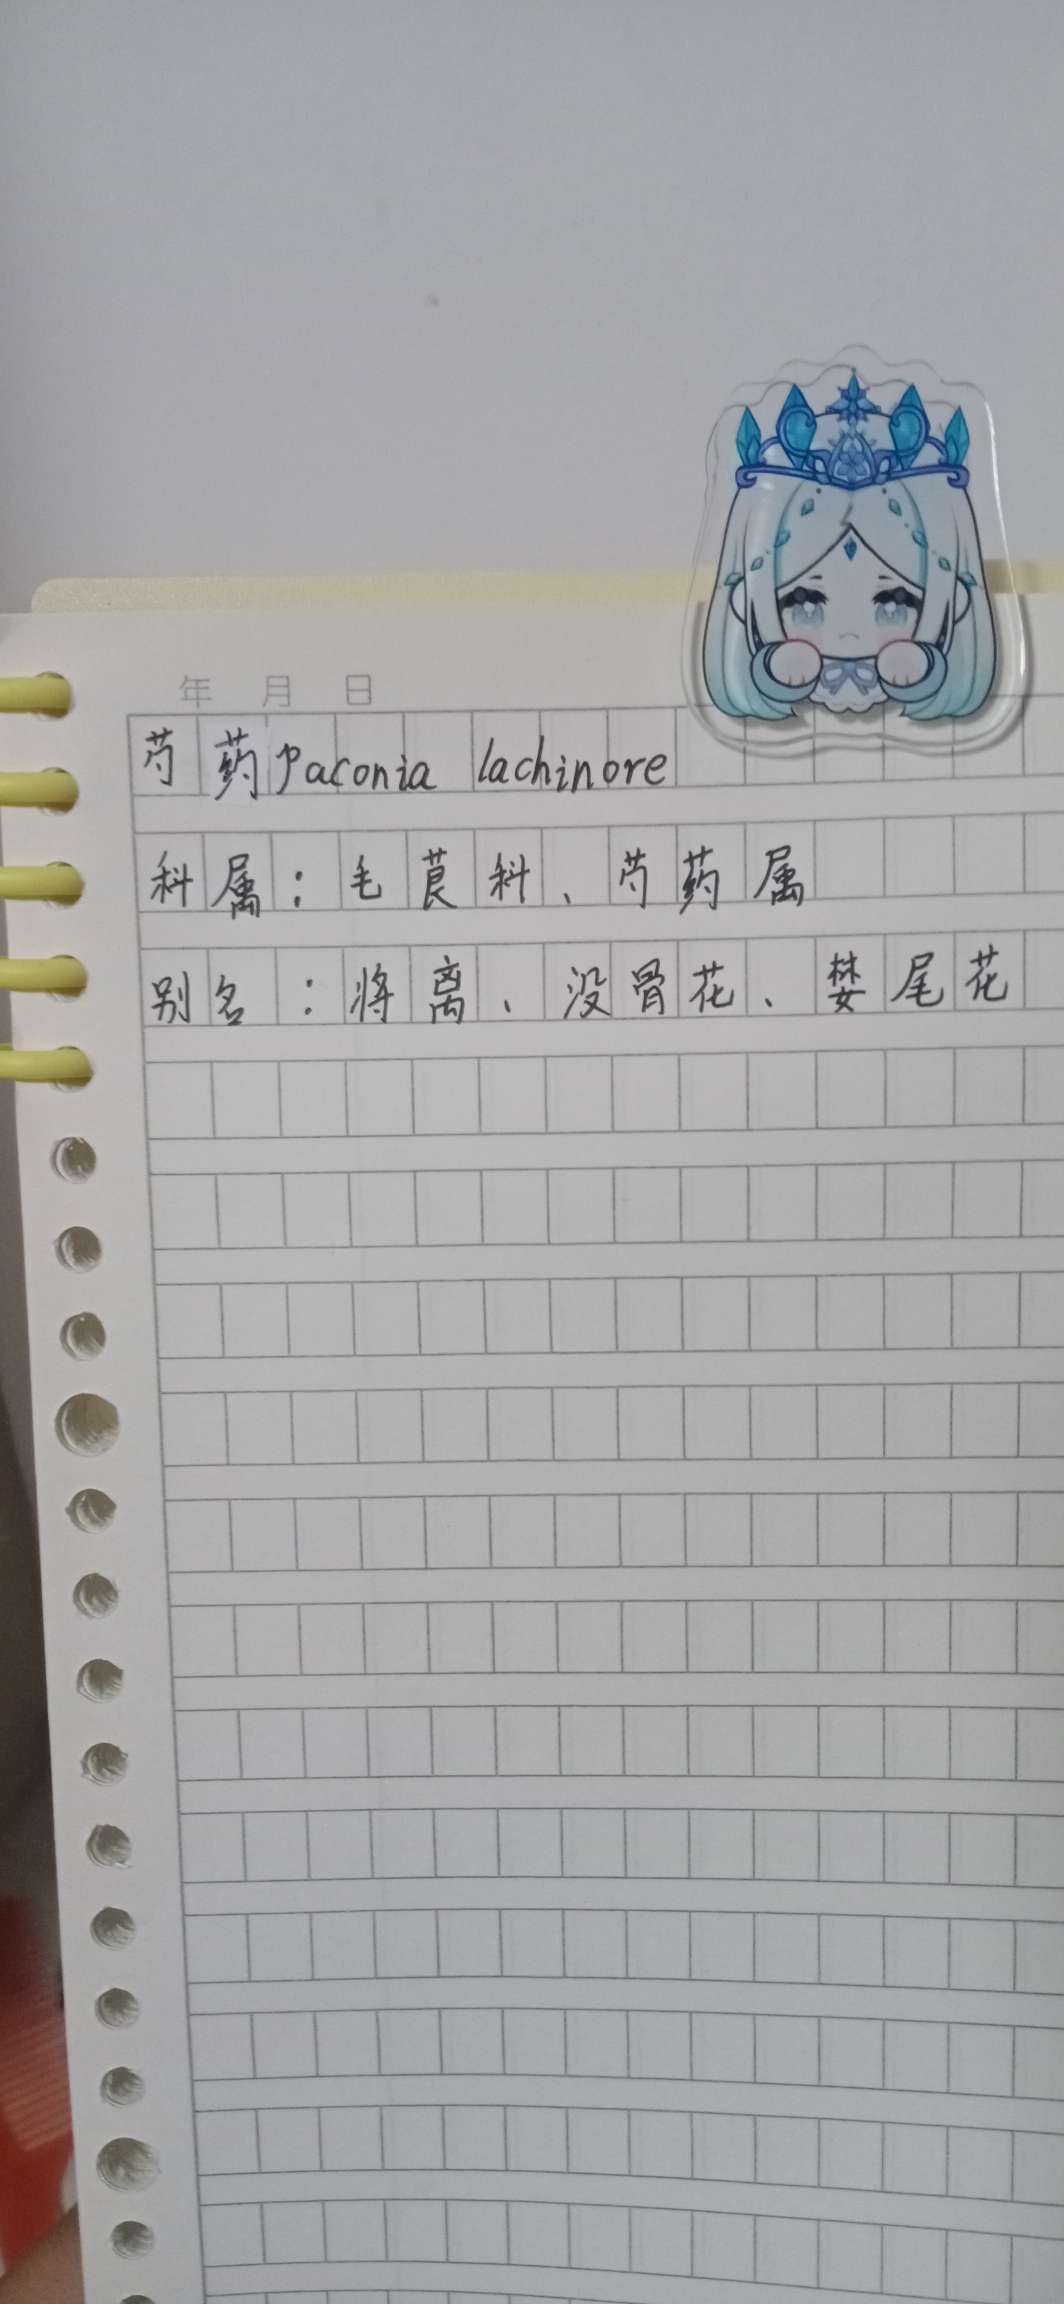 年 月 日
芍药Paconia lachinore
科属：毛茛科、芍药属
别名：将离、没骨花、婪尾花